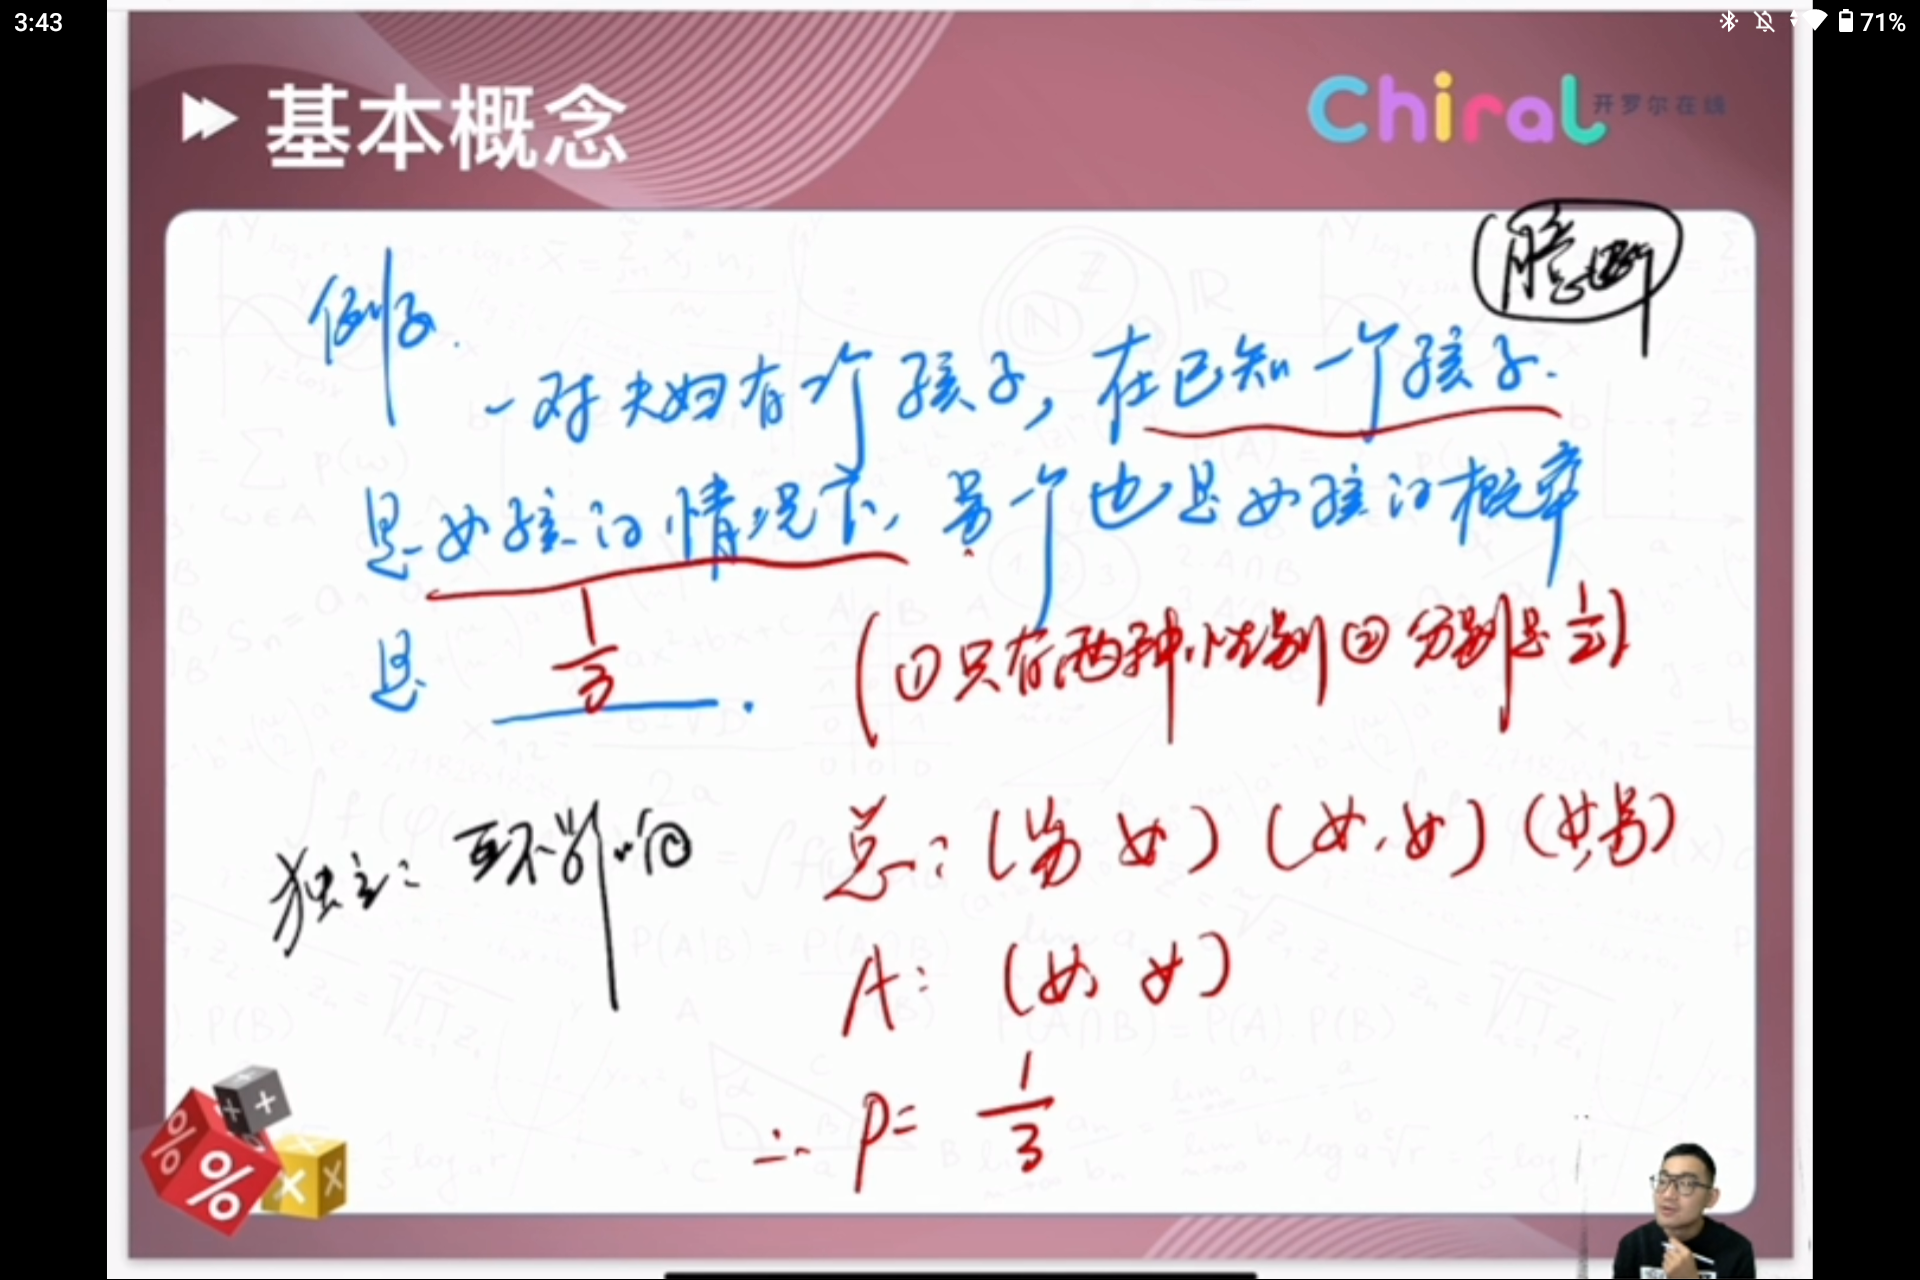 3:43
71%
基本概念
Chiral 开罗尔在线
臆断
例子.
一对夫妇有2个孩子, 在已知一个孩子
是女孩的情况下, 另一个也是女孩的概率
是 1/3 . (①只有两种性别②分别是1/2)
独立: 互不影响
总: (男 女) (女, 女) (女, 男)
A: (女, 女)
∴ P= 1/3